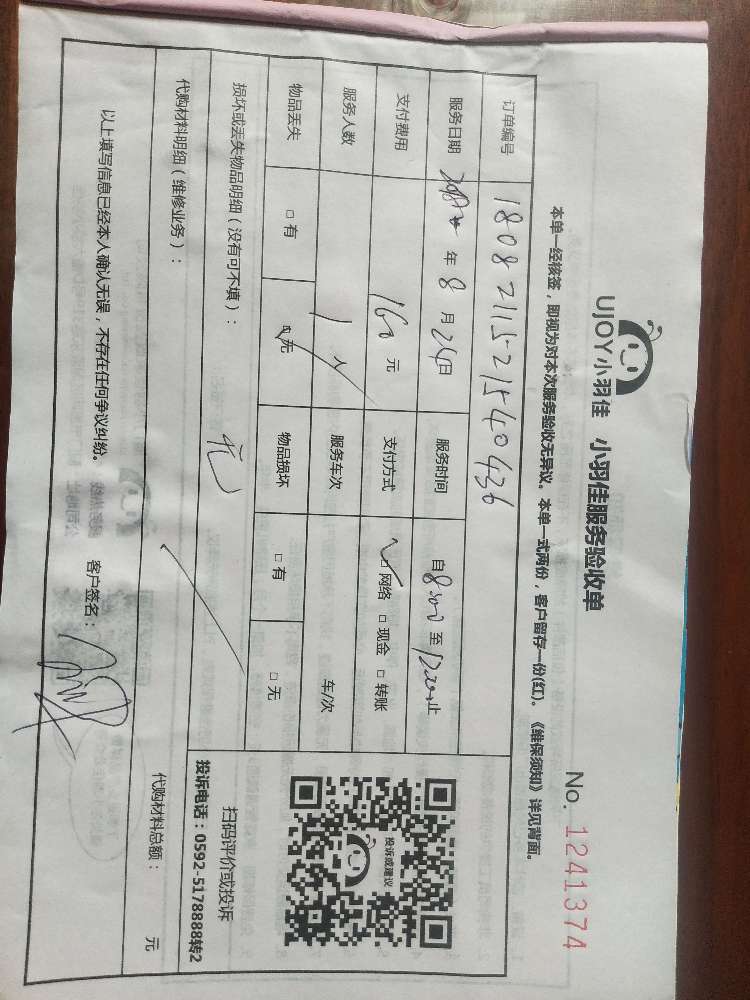 UJOY小羽佳 小羽佳服务验收单
No. 1241374
本单一经核签，即视为对本次服务验收无异议。本单一式两份，客户留存一份(红)。《维保须知》详见背面。
订单编号 1808211521540436
服务日期 年 8 月 24日 服务时间 自 8:00 至 12:00 止
支付费用 160 元 支付方式 ☑网络 □现金 □转账
服务人数 1人 服务车次 车/次
物品丢失 □有 ☑无 物品损坏 □有 □无
损坏或丢失物品明细（没有可不填）： 无
代购材料明细（维修业务）：
投诉或建议
扫码评价或投诉
投诉电话：0592-5178888转2
代购材料总额： 元
以上填写信息已经本人确认无误，不存在任何争议纠纷。 客户签名：